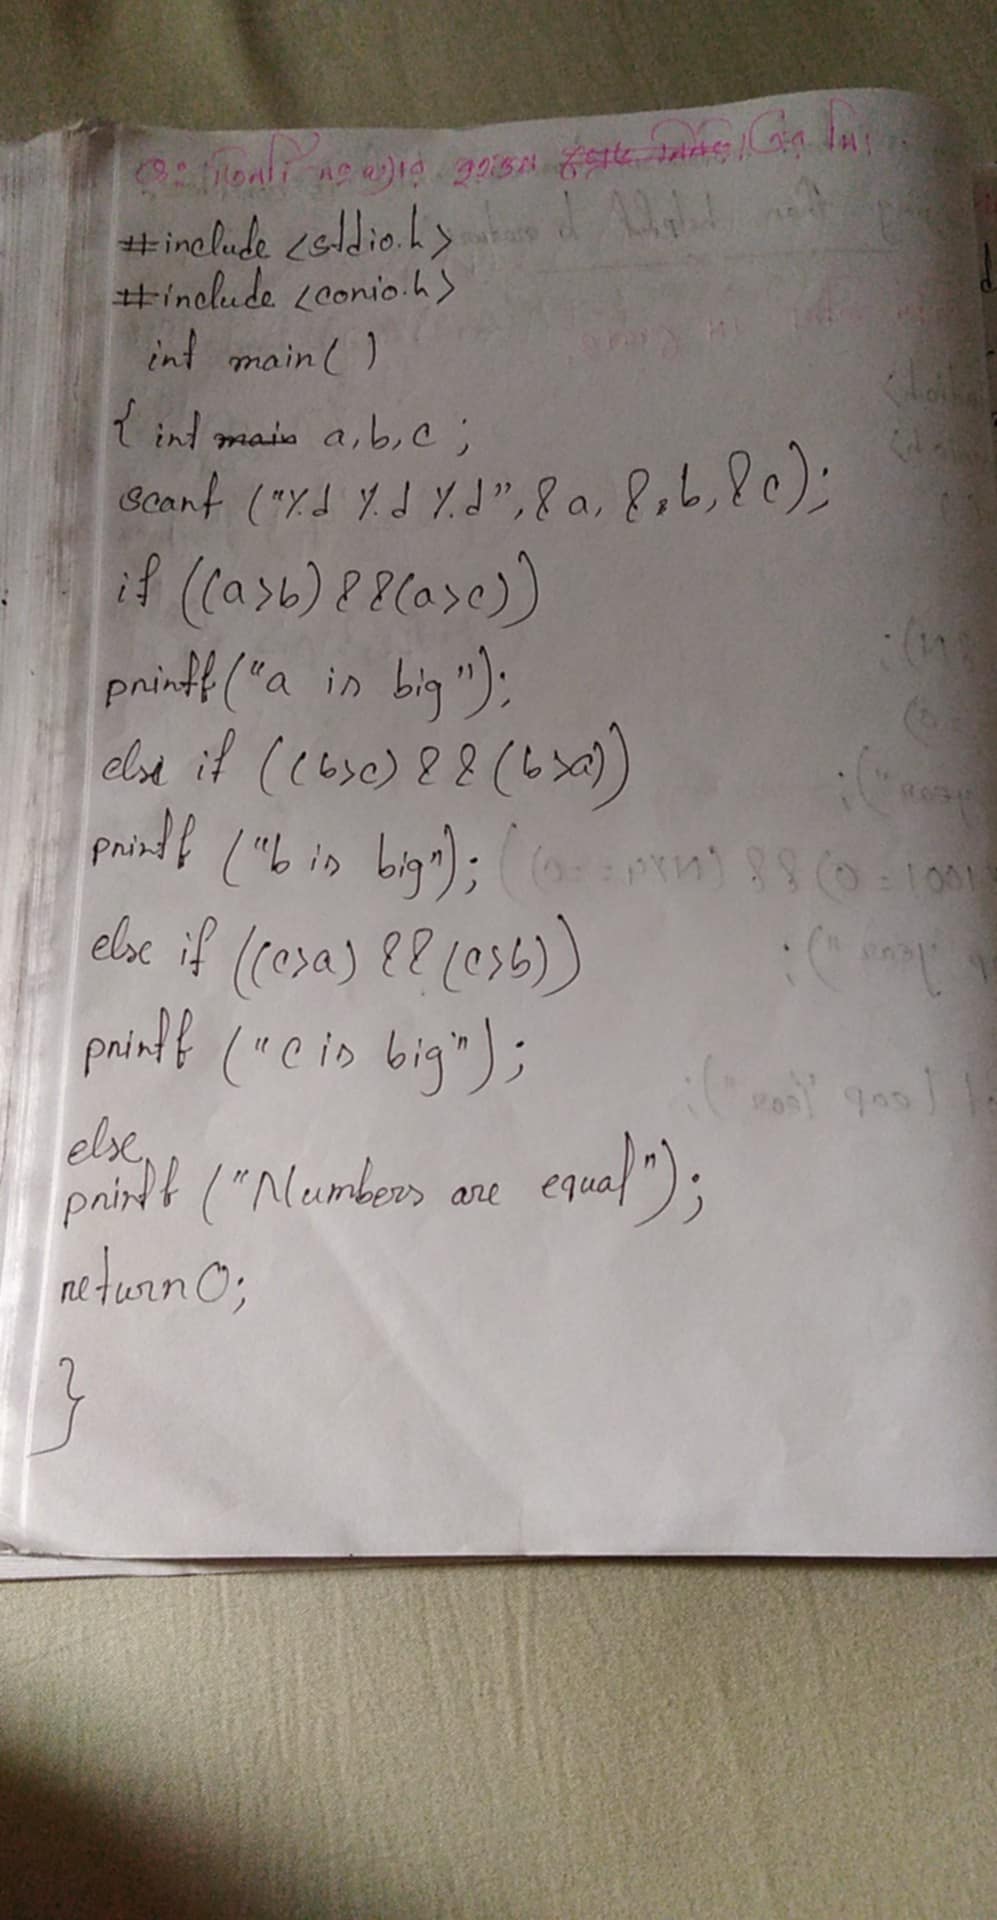 #include <stdio.h>
#include <conio.h>
int main()
{ int main a,b,c;
scanf ("%d %d %d", &a, &b, &c);
if ((a>b) &&(a>c))
printf("a is big");
else if ((b>c) && (b>a))
printf ("b is big");
else if ((c>a) && (c>b))
printf ("c is big");
else
printf ("Numbers are equal");
return 0;
}